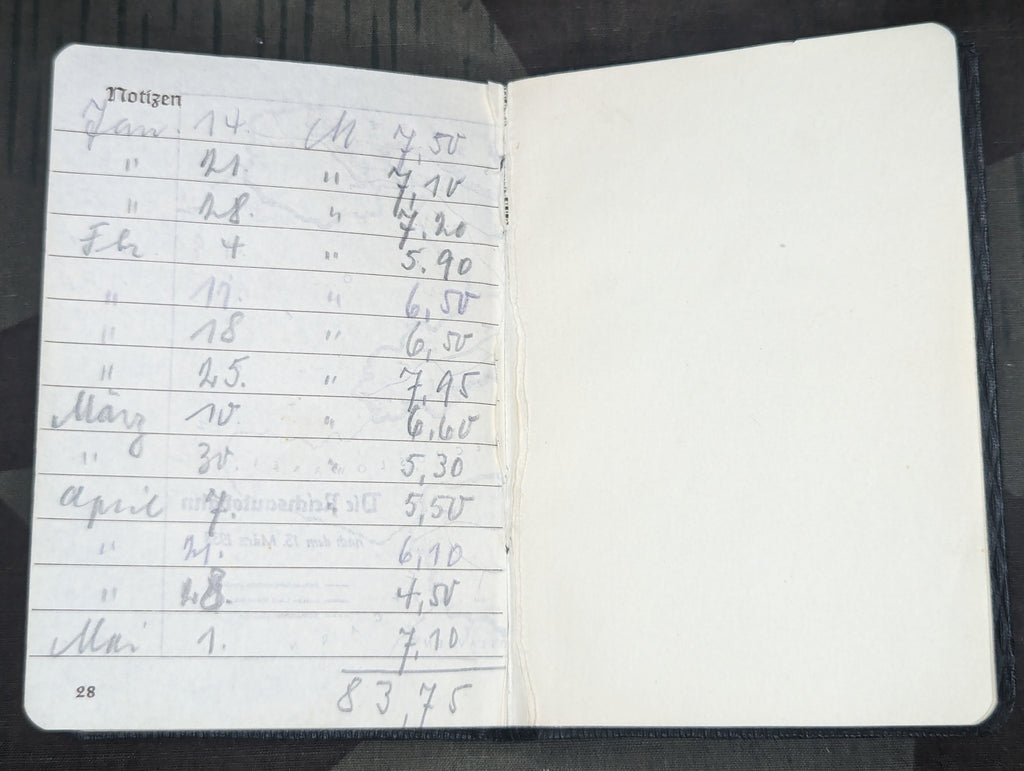 Notizen
Jan. 14. M 7,50
" 21. " 7,10
" 28. " 7,20
Feb. 4 " 5.90
" 11. " 6,50
" 18 " 6,50
" 25. " 7,95
März 10 " 6,60
" 30 " 5,30
April 7. " 5,50
" 21. 6,10
" 28. 4,50
Mai 1. 7,10
83,75
28
Die Reichsautobahn